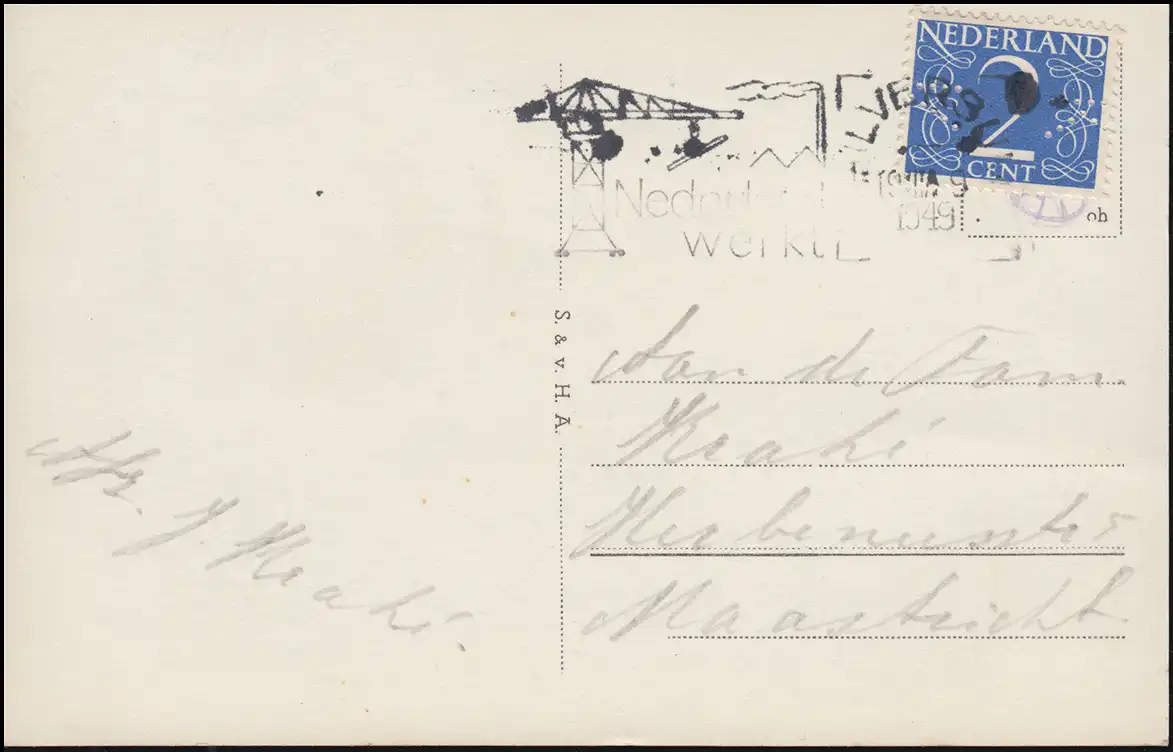 NEDERLAND
2
CENT
Nederland
werkt
1949
oh
S. & v. H. A.
Aan de Fam.
Krahé
Herbenusstr 5
Maastricht
Afz. J. Krahé.